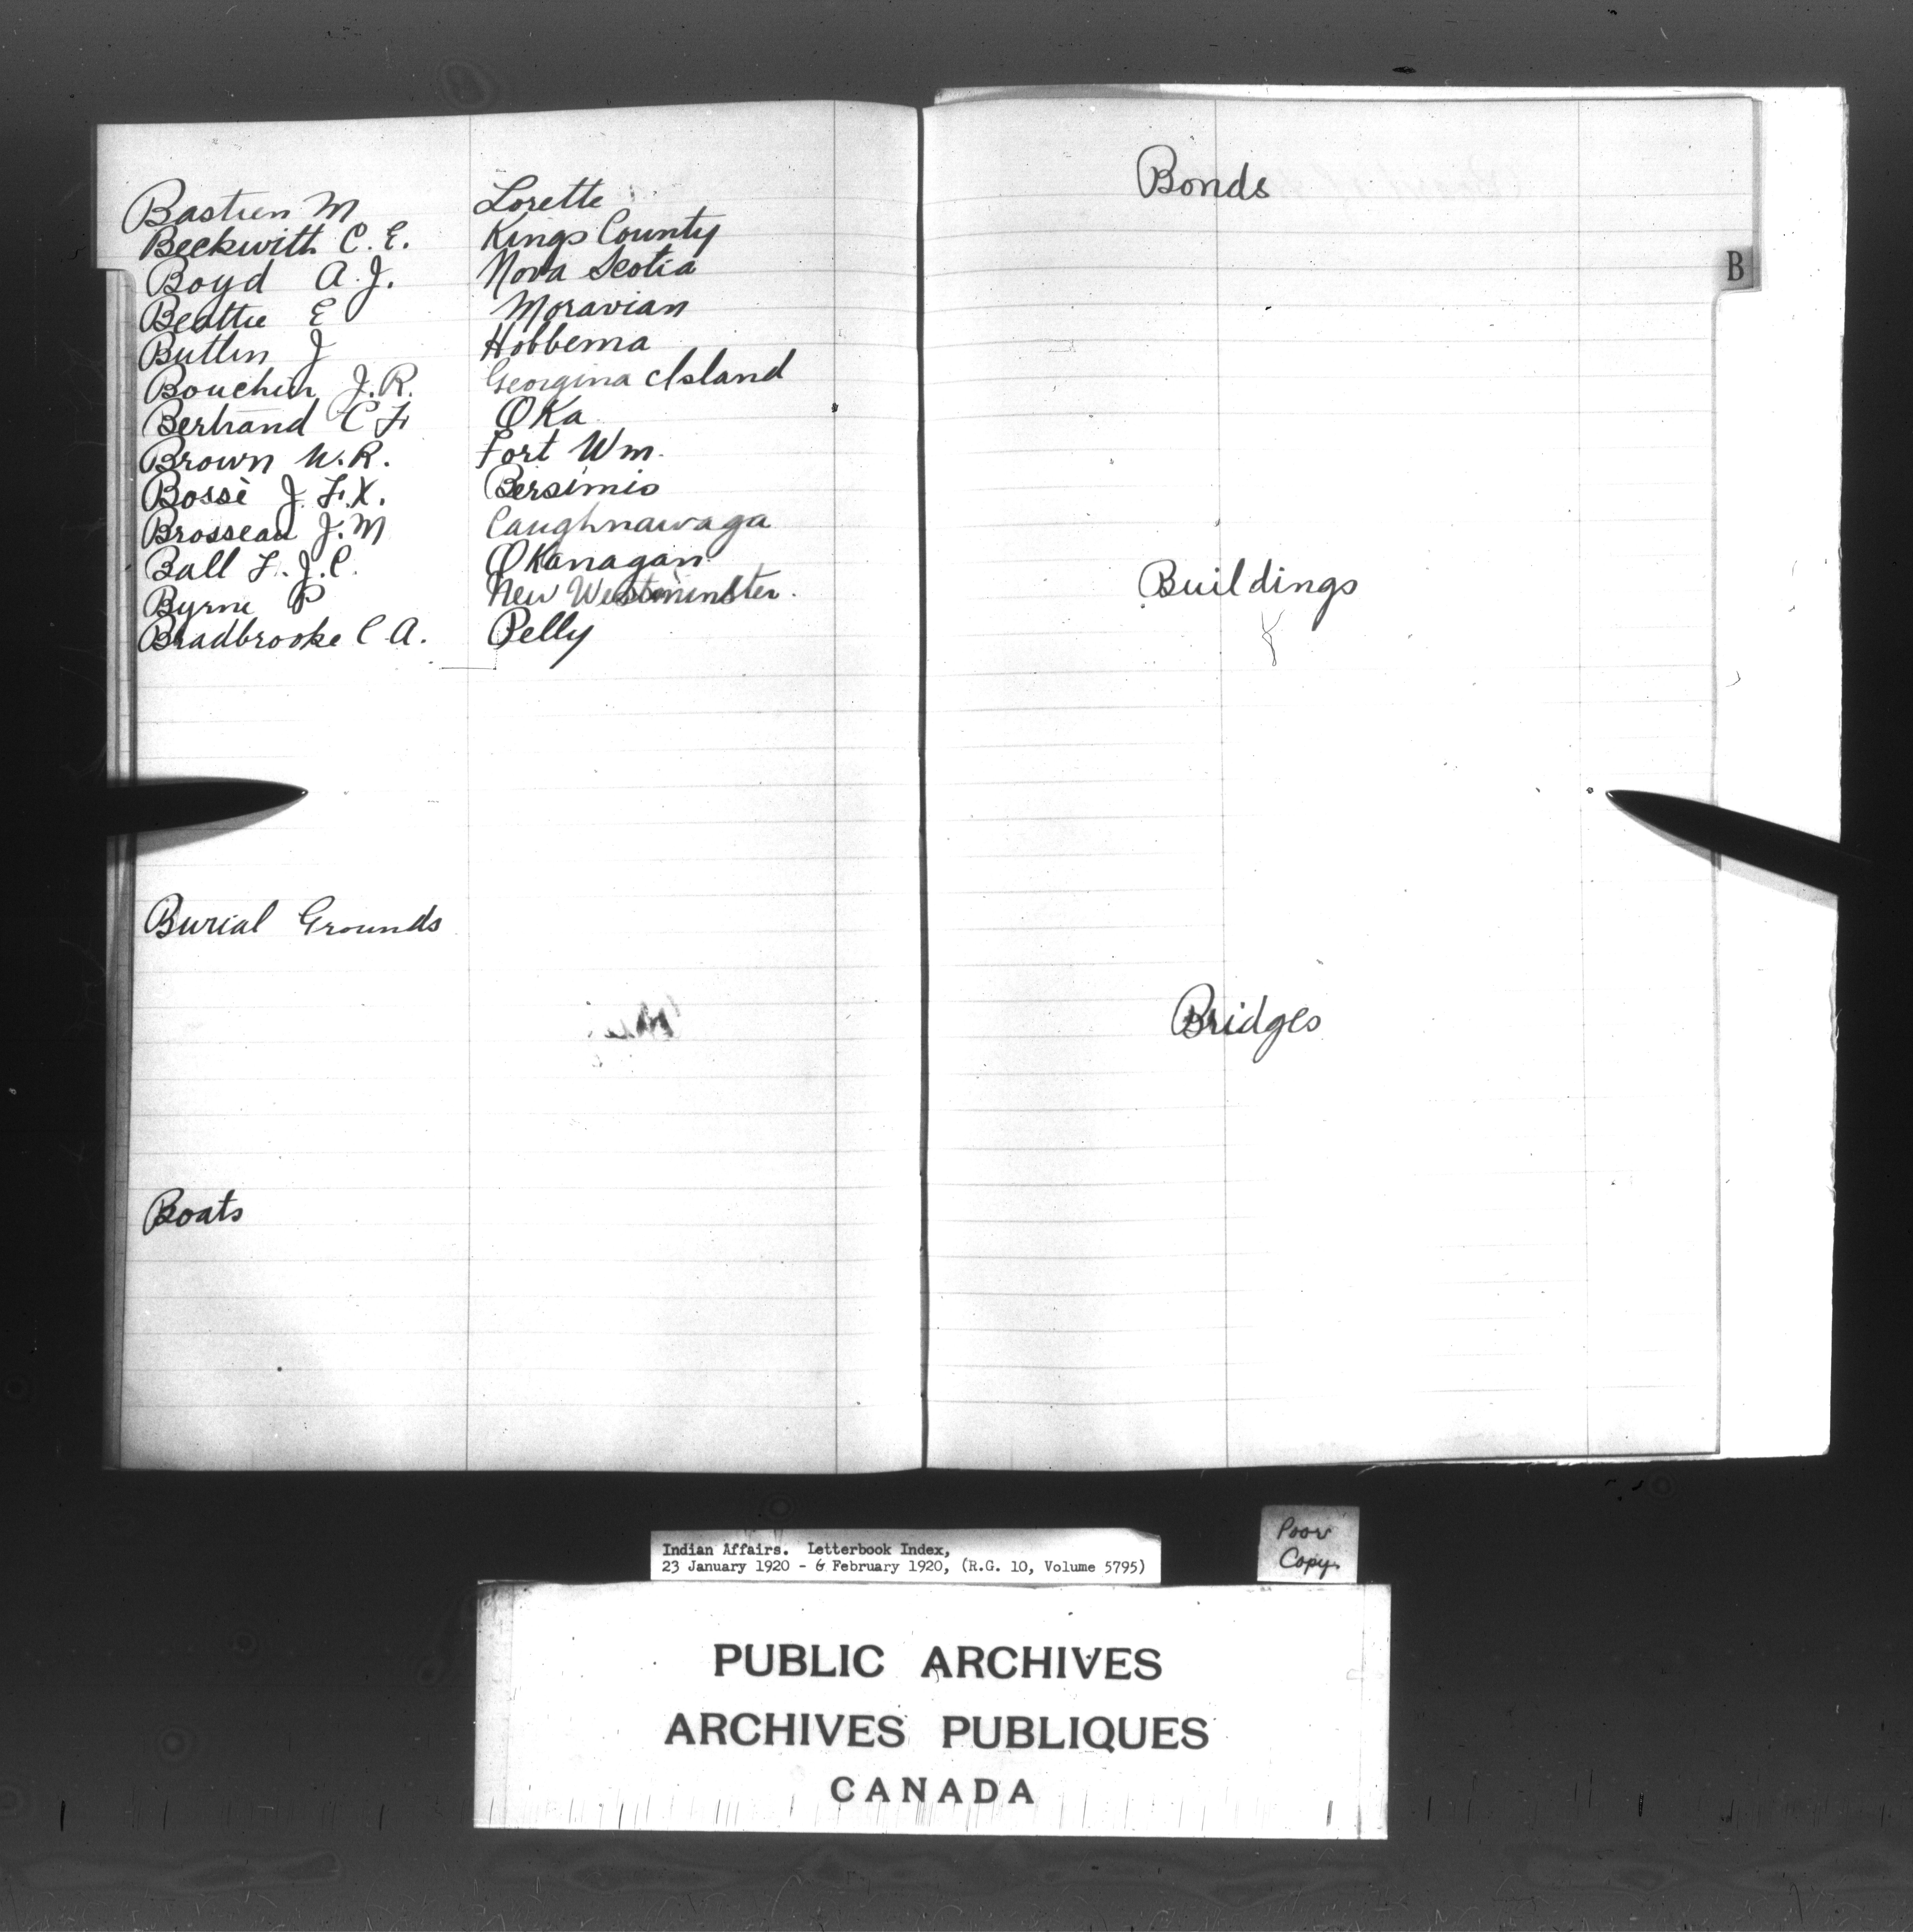 Bastien M Lorette
Beckwith C. E. Kings County
Boyd A. J. Nova Scotia
Beattie E Moravian
Butlin J Hobbema
Bouchin J. R. Georgina Island
Bertrand C F Oka
Brown W. R. Fort Wm.
Bossè J. F. X. Bersimis
Brosseau J. M Caughnawaga
Ball F. J. C. Okanagan
Byrne P New Westminster.
Bradbrooke C A. Pelly
Burial Grounds
Boats
Bonds
B
Buildings
Bridges
Indian Affairs. Letterbook Index,
23 January 1920 - 6 February 1920, (R.G. 10, Volume 5795)
Poor
Copy
PUBLIC ARCHIVES
ARCHIVES PUBLIQUES
CANADA